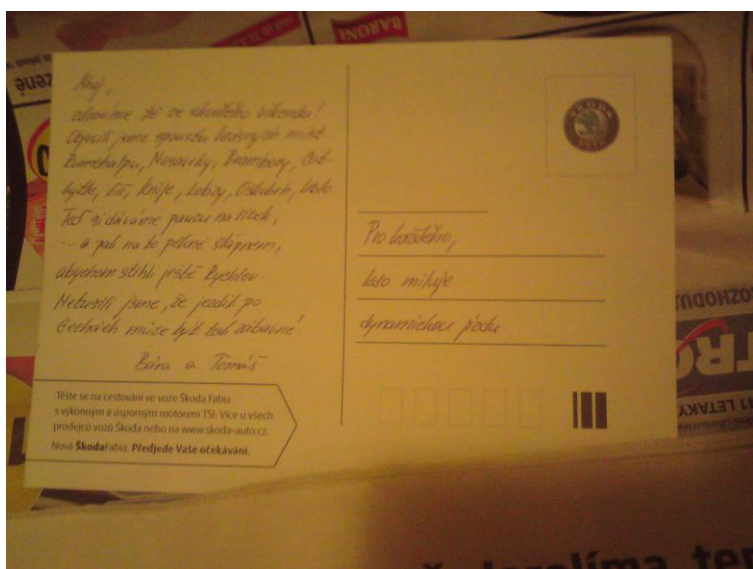 Ahoj,
zdravíme tě ze skvělého víkendu!
Objevili jsme spoustu krásných míst
Rumchalpu, Nosavky, Brambory,
Lobzy, Úsilné
Teď si dáváme pauzu na řízek,
... a pak na to pěkně šlápnem,
abychom stihli ještě Rychlov.
Netušili jsme, že jezdit po
Čechách může být tak zábavné!
Bára a Tomáš
Těšte se na cestování ve voze Škoda Fabia
s výkonným a úsporným motorem TSI. Více u všech
prodejců vozů Škoda nebo na www.skoda-auto.cz.
Nová ŠkodaFabia. Předjede Vaše očekávání.
ŠKODA
AUTO
Pro každého,
kdo miluje
dynamickou jízdu.
BARONE
ROZHODUJ
TRO
11 LETÁKY